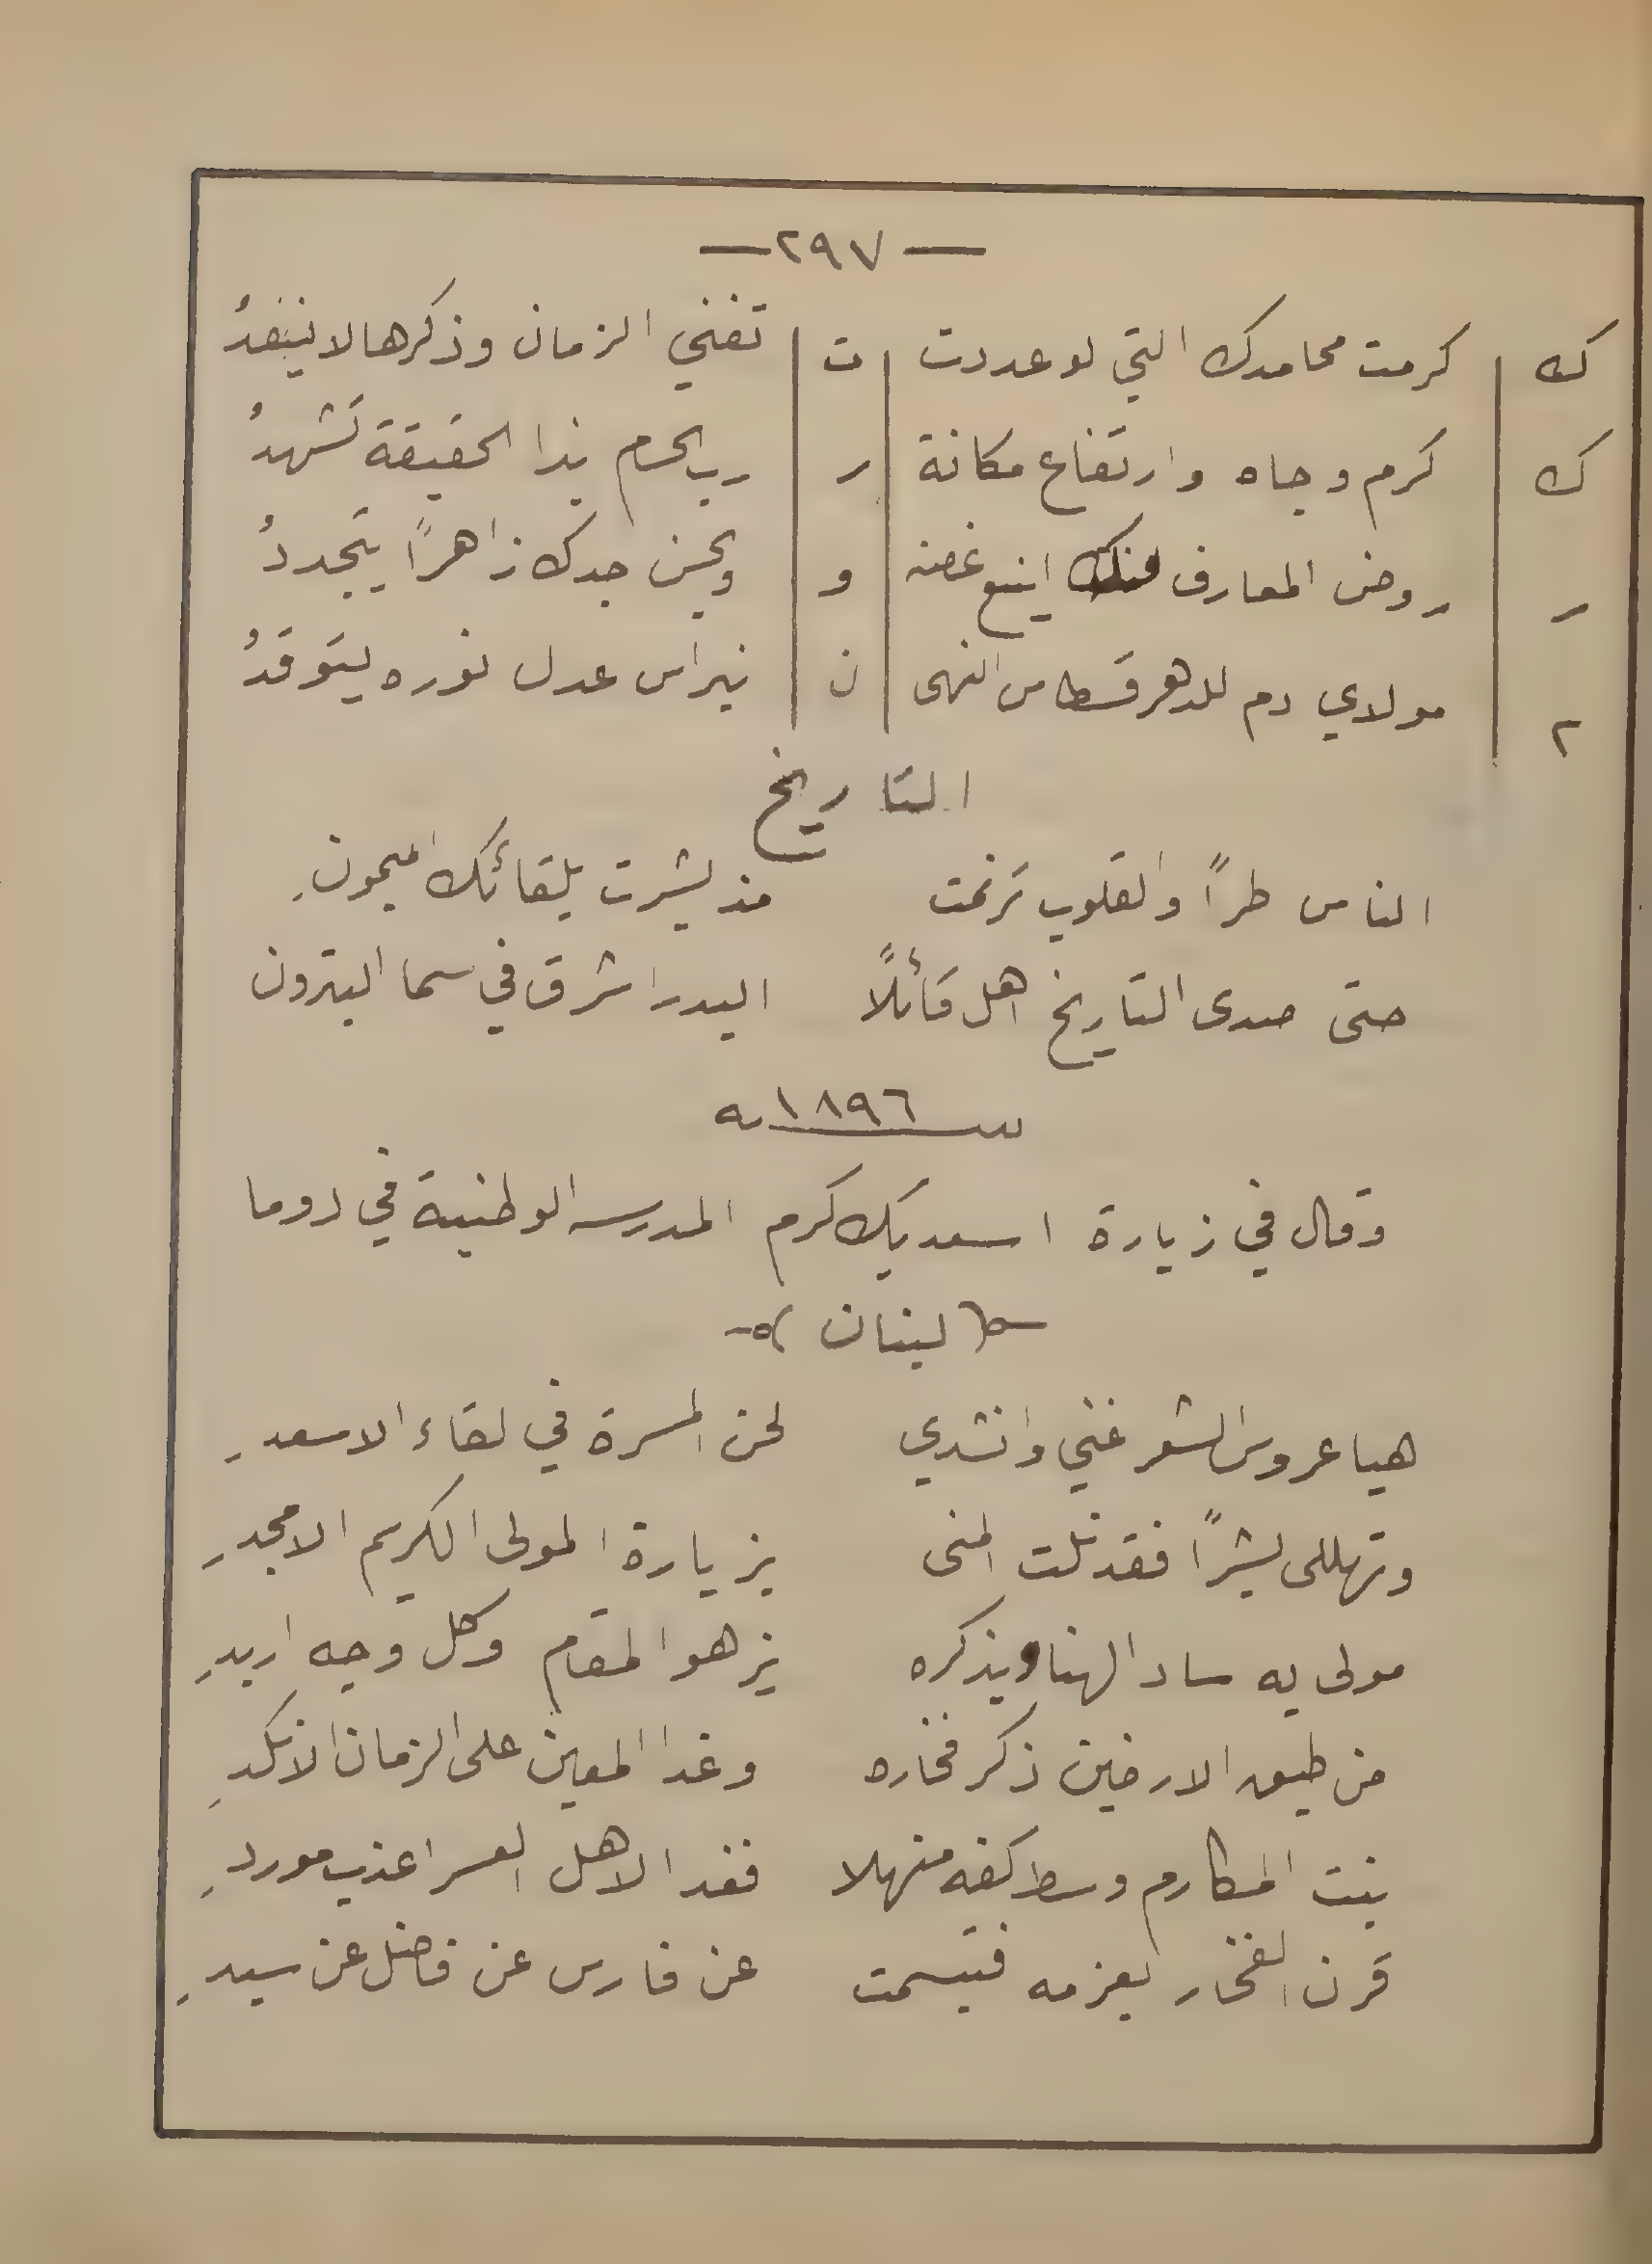 — ٢٩٧ —
ك | كرمت محامدك التي لو عددت | ت | تفني الزمان وذكرها لا ينفدُ
ك | كرم وجاه وارتفاع مكانة | ر | رب الحسام بذا الحقيقة تشهدُ
ر | روض المعارف منك اينع غصنه | و | وبحسن جدك زاهرًا يتجددُ
م | مولاي دم للدهر قسطاس النهى | ن | نبراس عدل نوره يتوقدُ
التاريخ
الناس طرًا والقلوب ترنمت مذ بشرت بلقائك الميمونِ
حتى صدى التاريخ اهل قائلًا البدر اشرق في سما البترون
سنة ١٨٩٦
وقال في زيارة اسعد بك كرم المدرسه الوطنية في دوما
(لبنان)
هيا عروس الشعر غني وانشدي لحن المسرة في لقاء الاسعدِ
وتهللى بشرًا فقد نلت المنى بزيارة المولى الكريم الامجدِ
مولى به ساد الهنا وبذكره يزهو المقام وكل وجه اربدِ
من طبق الارضين ذكر فخاره وغدا المعين على الزمان الانكدِ
بنت المكارم وسط كفه منهلا فغدا لاهل العسر اعذب موردِ
قرن الفخار بعزمه فتبسمت عن فارس عن فاضل عن سيدِ